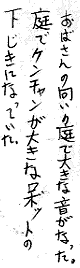 おばさんの向い庭で大きな音がなった。
庭でケンチャンが大きな呆ットの
下じきになっていた。